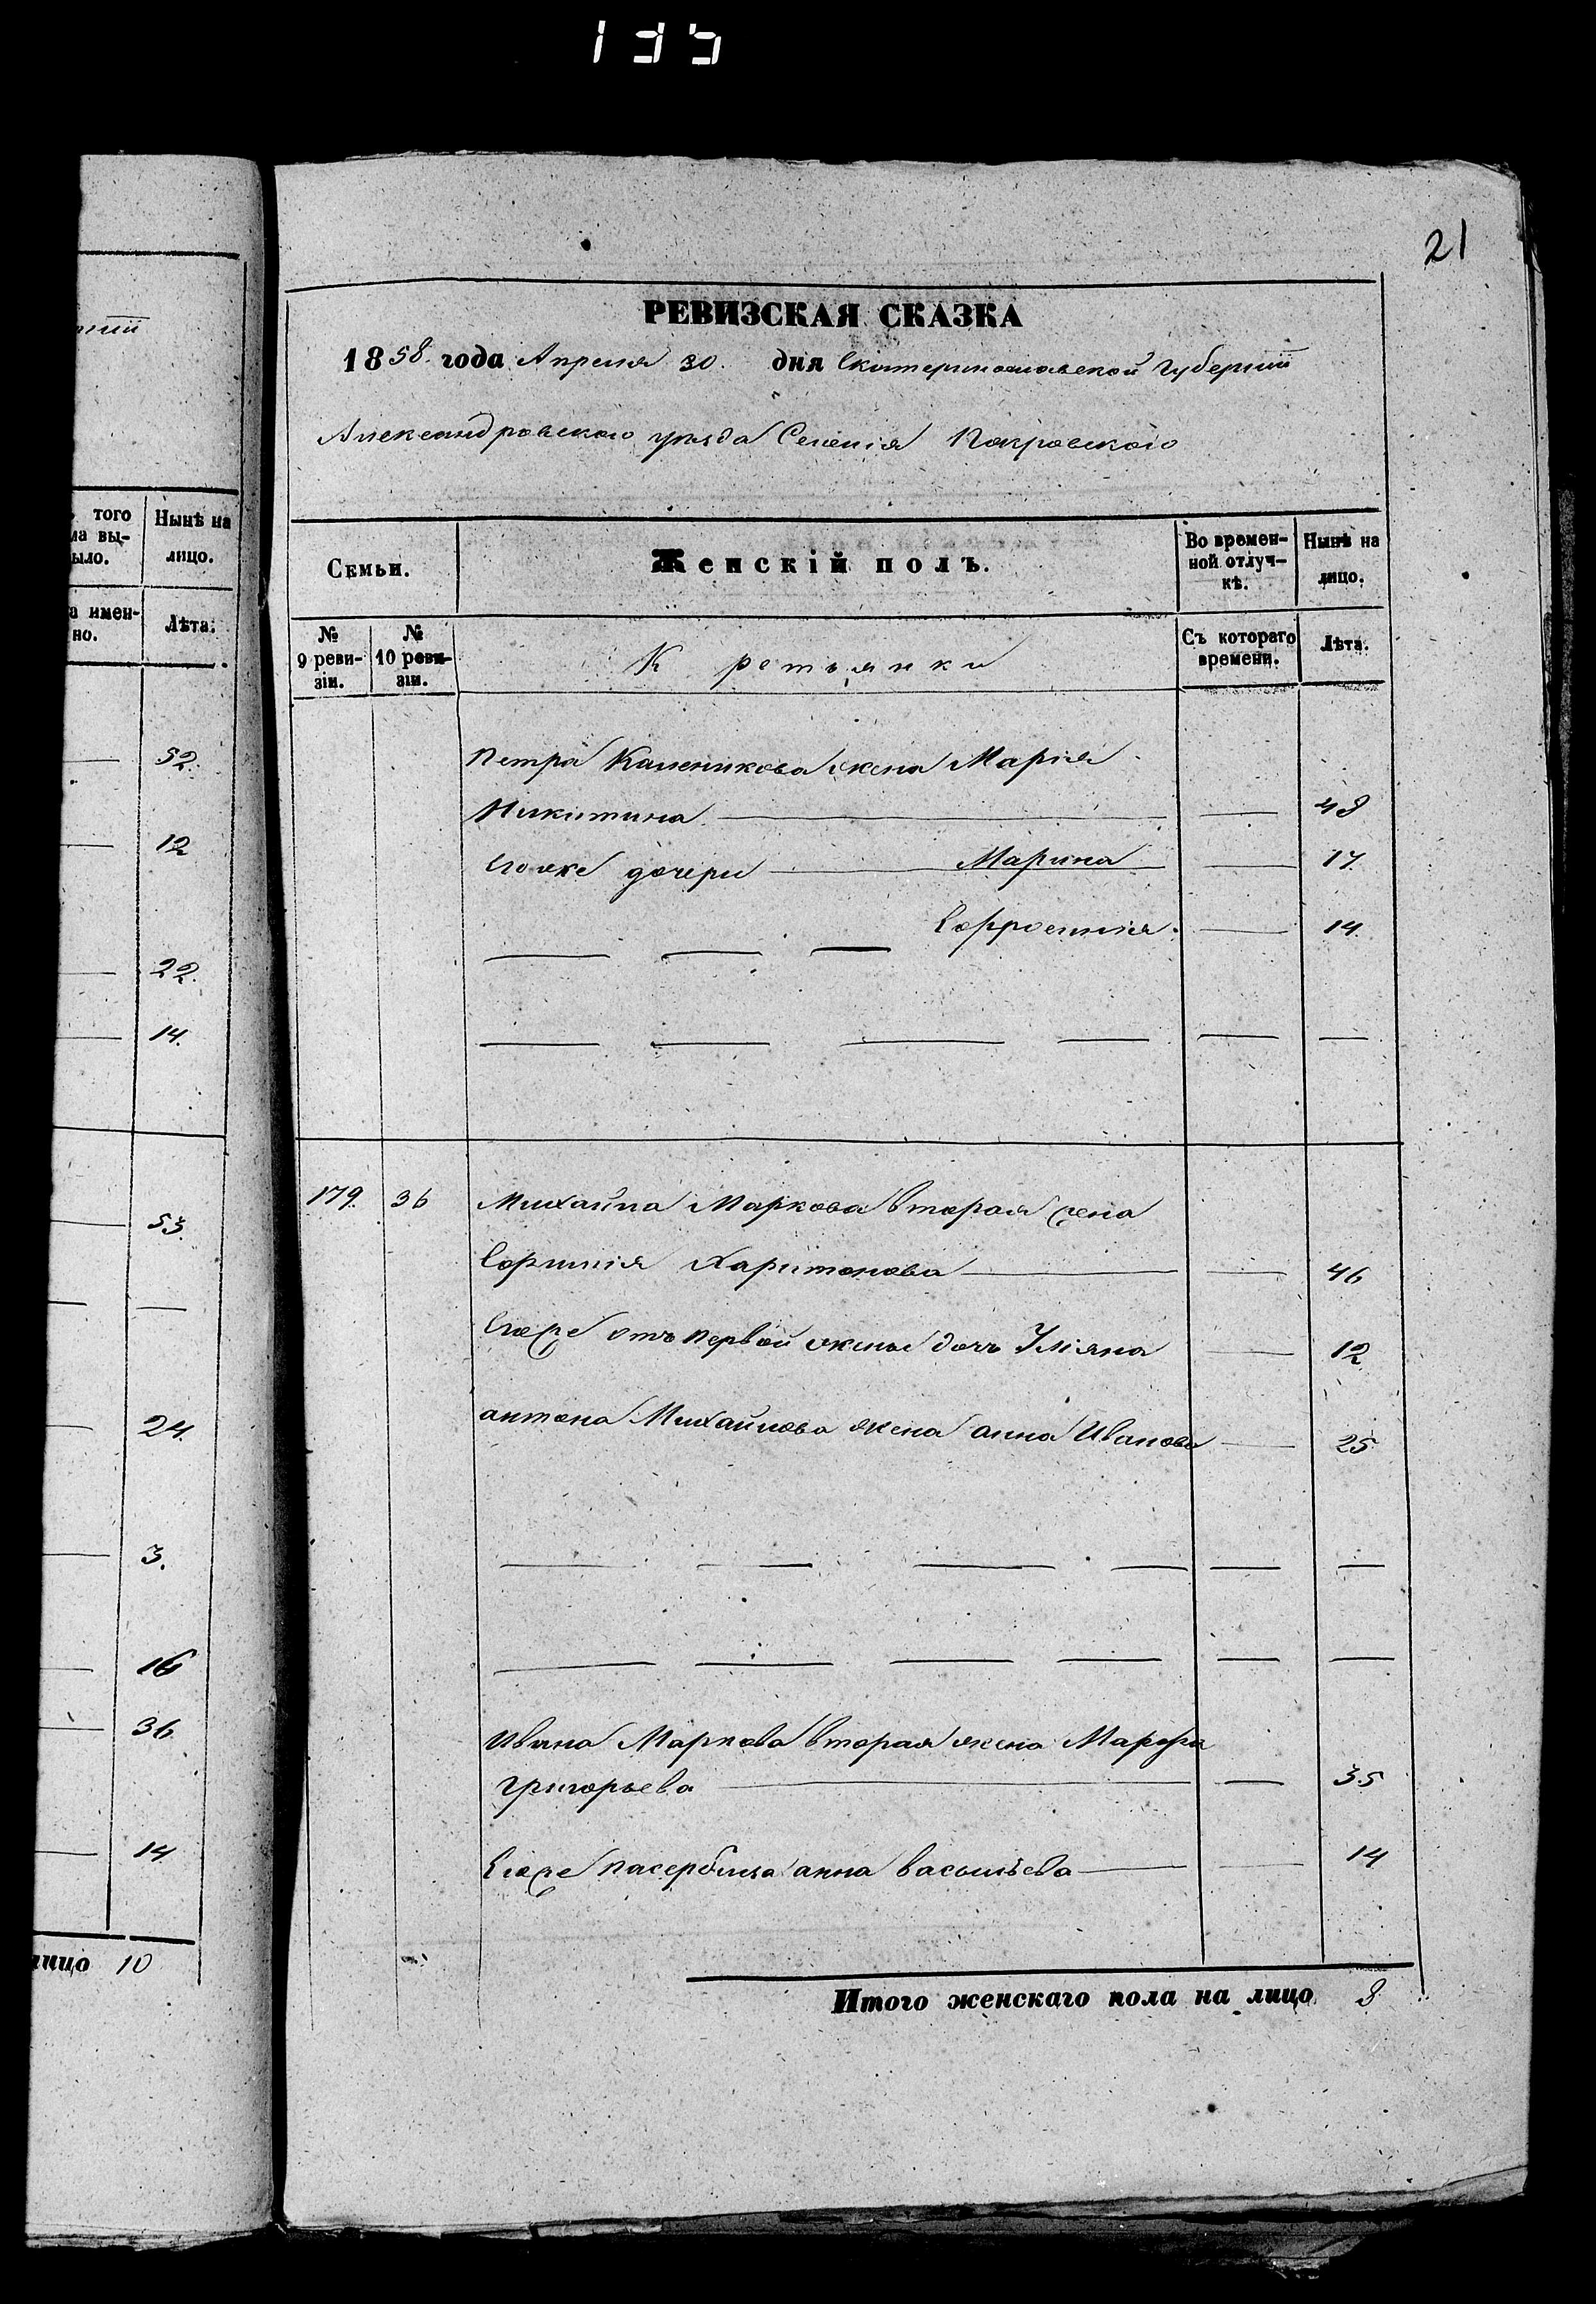 135
21
тніи
ъ того
ма вы-
было.
Нынѣ на
лицо.
а имен-
но.
Лѣта.
52.
12
22.
14.
53.
24.
3.
16
36
14
лицо 10
РЕВИЗСКАЯ СКАЗКА
1858. года Апреля 30. дня Екатеринославской Губерніи
Александровского уезда Селенія Покровского
Семьи.
Женскій полъ.
Во времен-
ной отлуч-
кѣ.
Нынѣ на
лицо.
№
9 реви-
зіи.
№
10 реви-
зіи.
К ретьянки
Съ котораго
времени.
Лѣта.
Петра Каленикова жена Марія
Никитина 48
Егоже дочери Марина 17.
Ефросинія 14.
179. 36 Михайла Маркова вторая жена
Ефимія Харитонова 46
Егоже отъ первой жены дочь Уліяна 12
антона Михайлова жена анна Иванова 25
Ивана Маркова вторая жена Марфа
Григорьева 35
Егоже пасербица анна васильева 14
Итого женскаго пола на лицо 8